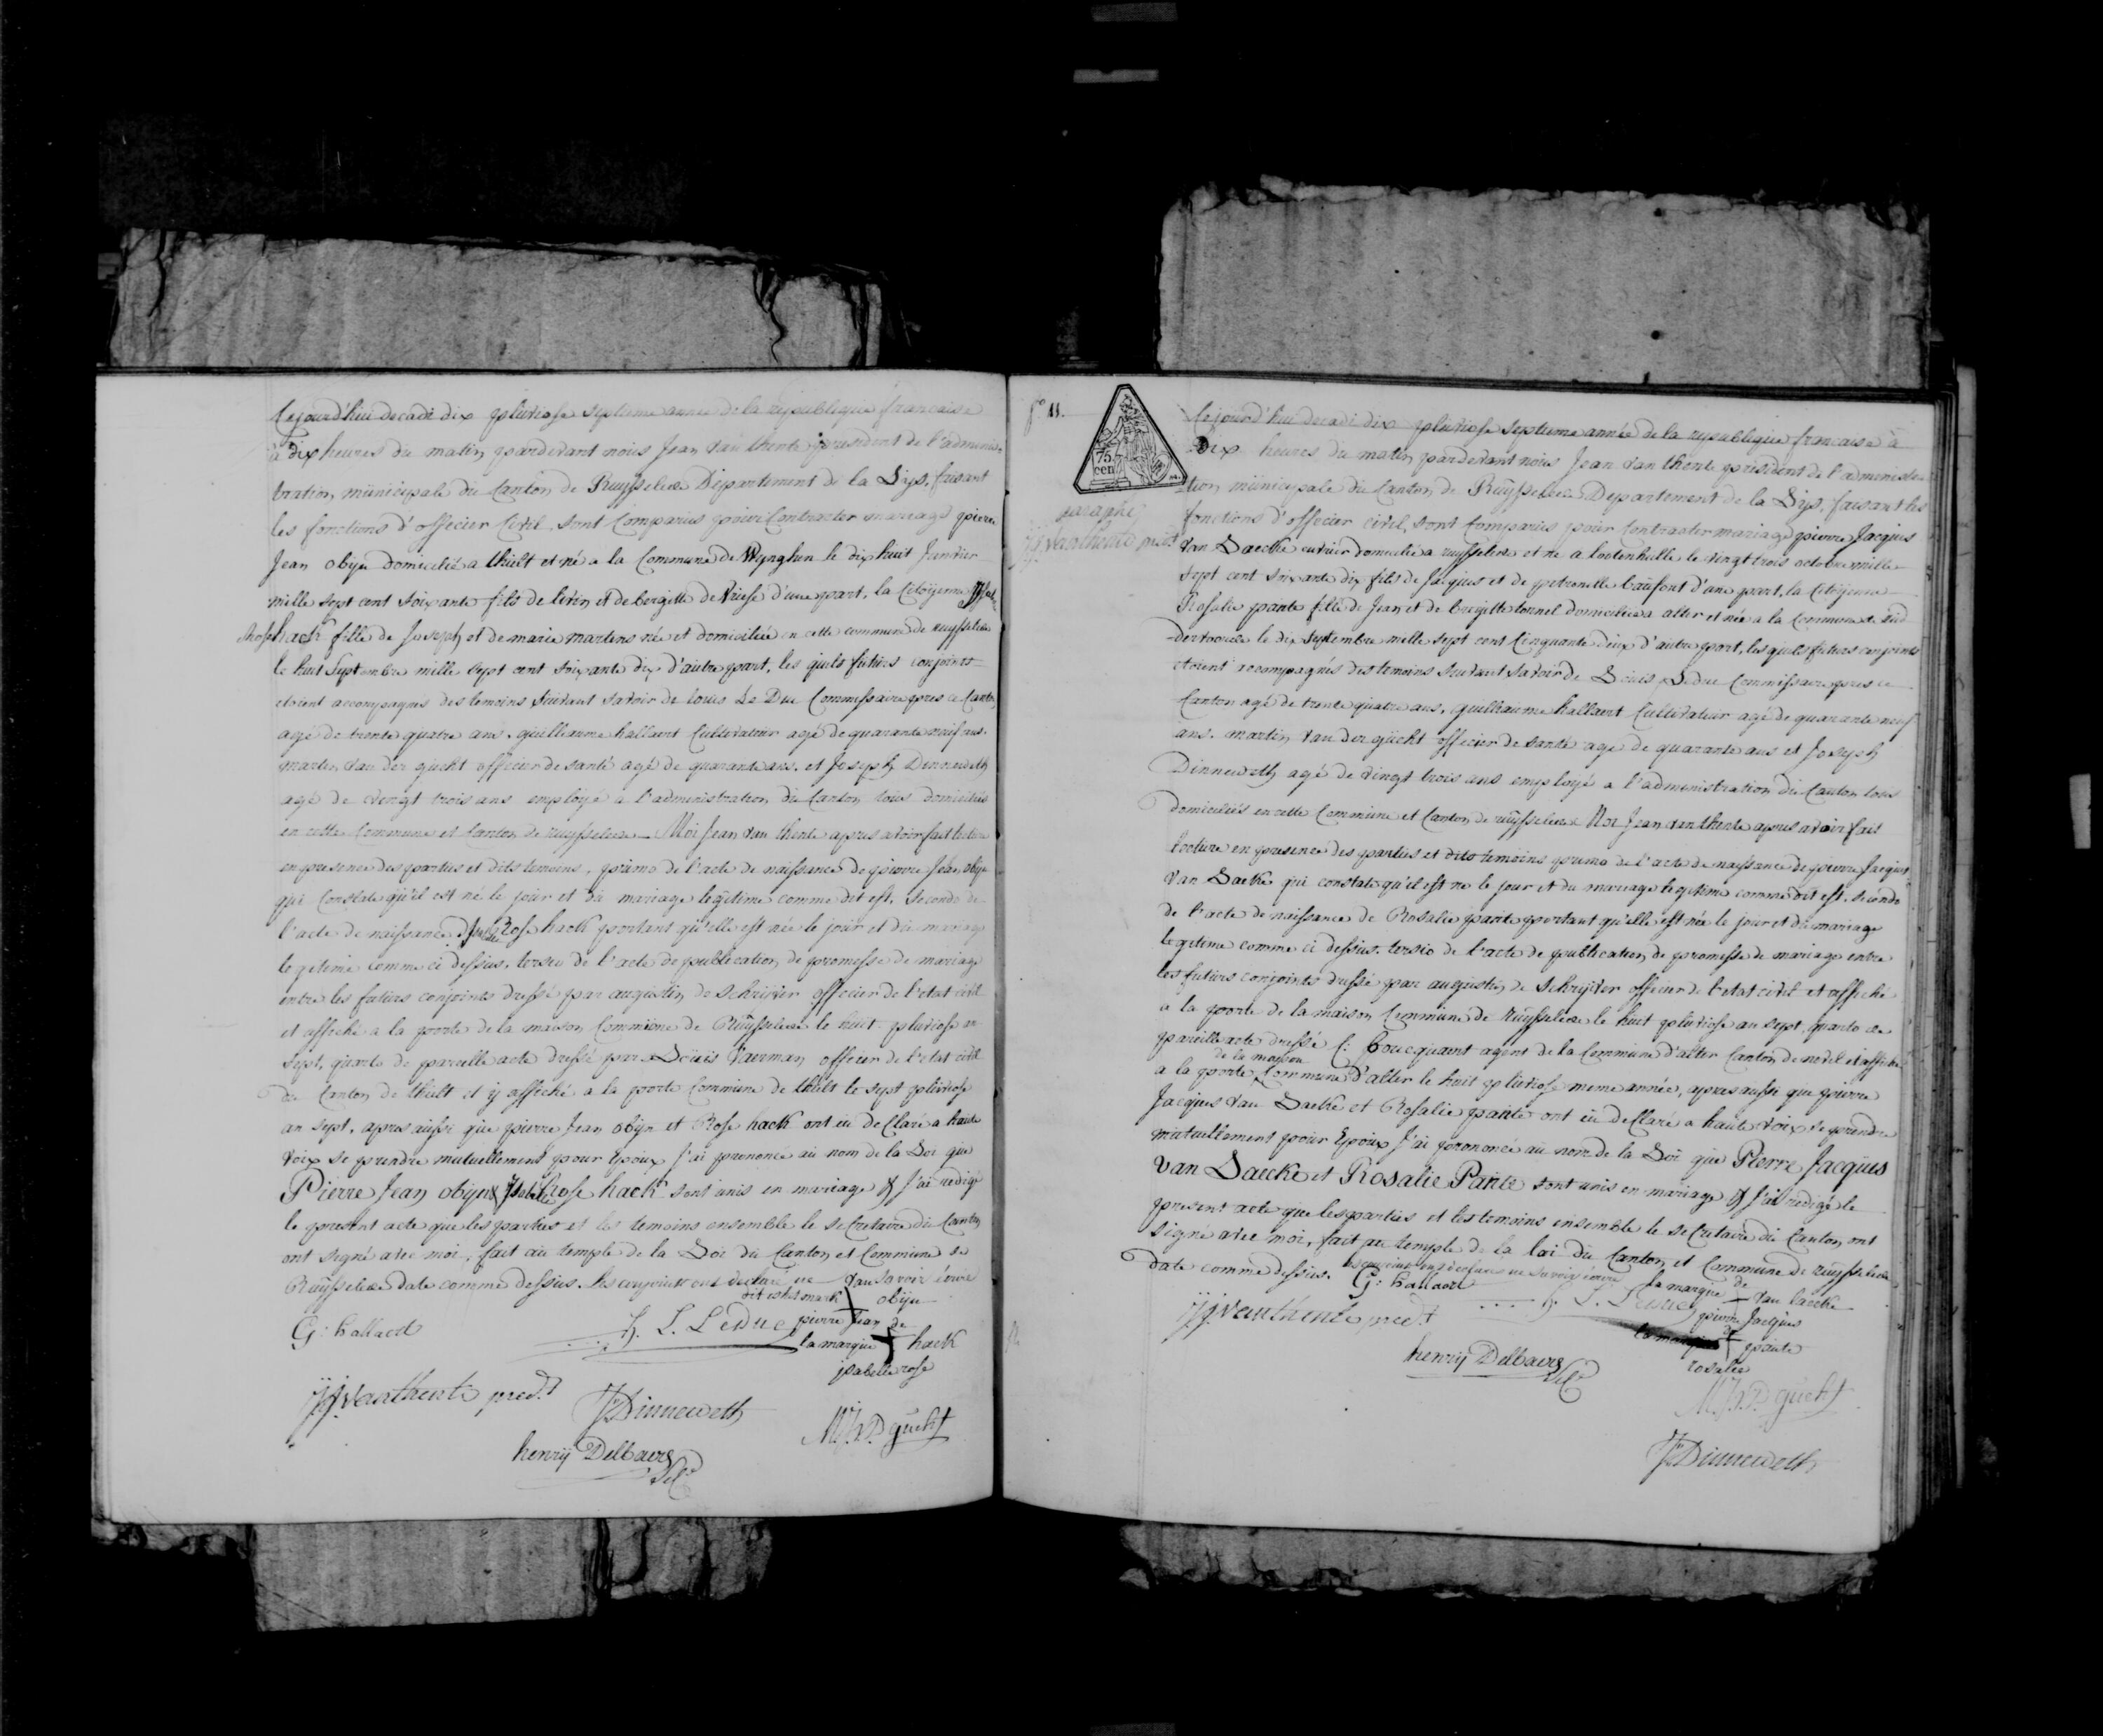 Cejourd'hui decadi dix pluviose septieme année de la republique francaise
à dix heures du matin pardevant nous Jean van thente president de l'adminis-
tration municipale du Canton de Ruysselede Departement de la Lys, faisant
les fonctions d'officier Civil. sont Comparus pour Contracter mariage pierre
Jean obijn domicilié a thielt et né a la Commune de Wynghene le dix huit Janvier
mille sept cent soixante fils de livin et de bergitte de Vriese d'une part, la Citoÿenne Isabelle
Rose hack fille de Joseph et de marie martens née et domiciliée en cette commune de ruysselede
le huit Septembre mille sept cent soixante dix d'autre part, les quels futurs conjoints
etoient accompagnés des temoins Suivant savoir de louis Le Duc Commissaire pres ce Canton
agé de trente quatre ans. guilleaume hallaert Cultivateur agé de quarante neuf ans.
martin van der gucht officier de santé agé de quarante ans. et Joseph Dinneweth
agé de vingt trois ans employé à l'administration du Canton tous domiciliés
en cette Commune et Canton de ruysselede — Moi Jean van thente apres avoir fait lecture
en presence des parties et dits temoins, primo de l'acte de naissance de pierre Jean obijn
qui Constate qu'il est né le jour et du mariage legitime comme dit est. secondo de
l'acte de naissance d'Isabelle Rose hack portant qu'elle est née le jour et du mariage
legitime comme ci dessus. tersio de l'acte de publication de promesse de mariage
entre les futurs conjoints dressé par augustin de schrijver officier de l'etat civil
et affiché a la porte de la maison Commune de Ruÿsselede le huit pluviose an
sept, quarto de pareille acte dressé par Loüis Vaerman officier de l'etat civil
du Canton de thielt et ij affiché a la porte Commune de thielt le sept pluviose
an sept, apres aussi que pierre Jean obijn et Rose hack ont eu deClaré a haute
voix se prendre mutuellement pour Epoux J'ai prononcé au nom de la Loi que
Pierre Jean obijn & Isabelle Rose hack sont unis en mariage & J'ai redigé
le present acte que les parties et les temoins ensemble le seCretaire du Canton
ont signé avec moi, fait au temple de la Loi du Canton et Commune de
Ruÿsselede date comme dessus. les conjoints ont declaré ne savoir écrire
dit is het mark van obijn
pierre Jean
G: hallaert L. Leduc la marque de hack
isabelle rose
J.J. vanthente pred.t J Dinneweth M. V. D. gucht
henrij Delbaere Sec.
f° 11.
75
cen
paraphé
J.J. Vanthente presdt
Cejourd'hui decadi dix pluviose septieme année de la republique francaise à
Dix heures du matin pardevant nous Jean van thente president de l'administra
tion municipale du Canton de Ruÿsselede Departement de la Lys, faisant les
fonctions d'officier civil, sont Comparus pour Contracter mariage pierre Jacques
van Laecke ouvrier domicilié a ruysselede et né a lootenhulle le vingt trois octobre mille
sept cent soixante dix fils de Jacques et de petronelle baüfont d'une part, la Citoÿenne
Rosalie pante fille de Jean et de bregitte tonnel domiciliée a alter et née a la Commune de
le dix Septembre mille sept cent Cinquante deux d'autre part, les quels futurs conjoints
etoient accompagnés des temoins suivant savoir de Louis Leduc Commissaire pres ce
Canton agé de trente quatre ans, guilliaume hallaert Cultivateur agé de quarante neuf
ans. martin van der gücht officier de santé agé de quarante ans et Joseph
Dinneweth agé de vingt trois ans employé a l'administration du Canton tous
domiciliés en cette Commune et Canton de ruÿsselede Moi Jean van thente apres avoir fait
lecture en presence des parties et dits temoins primo de l'acte de naissance de pierre Jacques
van Laecke qui constate qu'il est né le jour et du mariage legitime comme dit est. secondo
de l'acte de naissance de Rosalie pante portant qu'elle est née le jour et du mariage
legitime comme ci dessus. tersio de l'acte de publication de promesse de mariage entre
les futurs conjoints dressé par augustin de schrijver officier de l'etat civil et affiché
à la porte de la maison Commune de ruÿsselede le huit pluviose an sept, quarto de
pareille acte dressé C: boucquaert agent de la Commune d'alter Canton de nevel et affiché
de la maison
a la porte Commune d'alter le huit pluviose meme année, apres aussi que pierre
Jacques van Laecke et Rosalie pante ont eü deClaré a haute voix se prendre
mutuellement pour Epoux J'ai prononcé au nom de la Loi que Pierre Jacques
van Laecke et Rosalie Pante sont unis en mariage & J'ai redigé le
present acte que les parties et les temoins ensemble le seCretaire du Canton ont
signé avec moi, fait au temple de la loi du Canton et Commune de ruysselede
date comme dessus. les conjoints ont declaré ne savoir écrire
G: hallaert la marque de van laecke
J.J. vanthente pred.t L. Leduc pierre Jacques
la marque de pante
henrij Delbaere Sec. rosalie
M. V. D. gücht
J Dinneweth